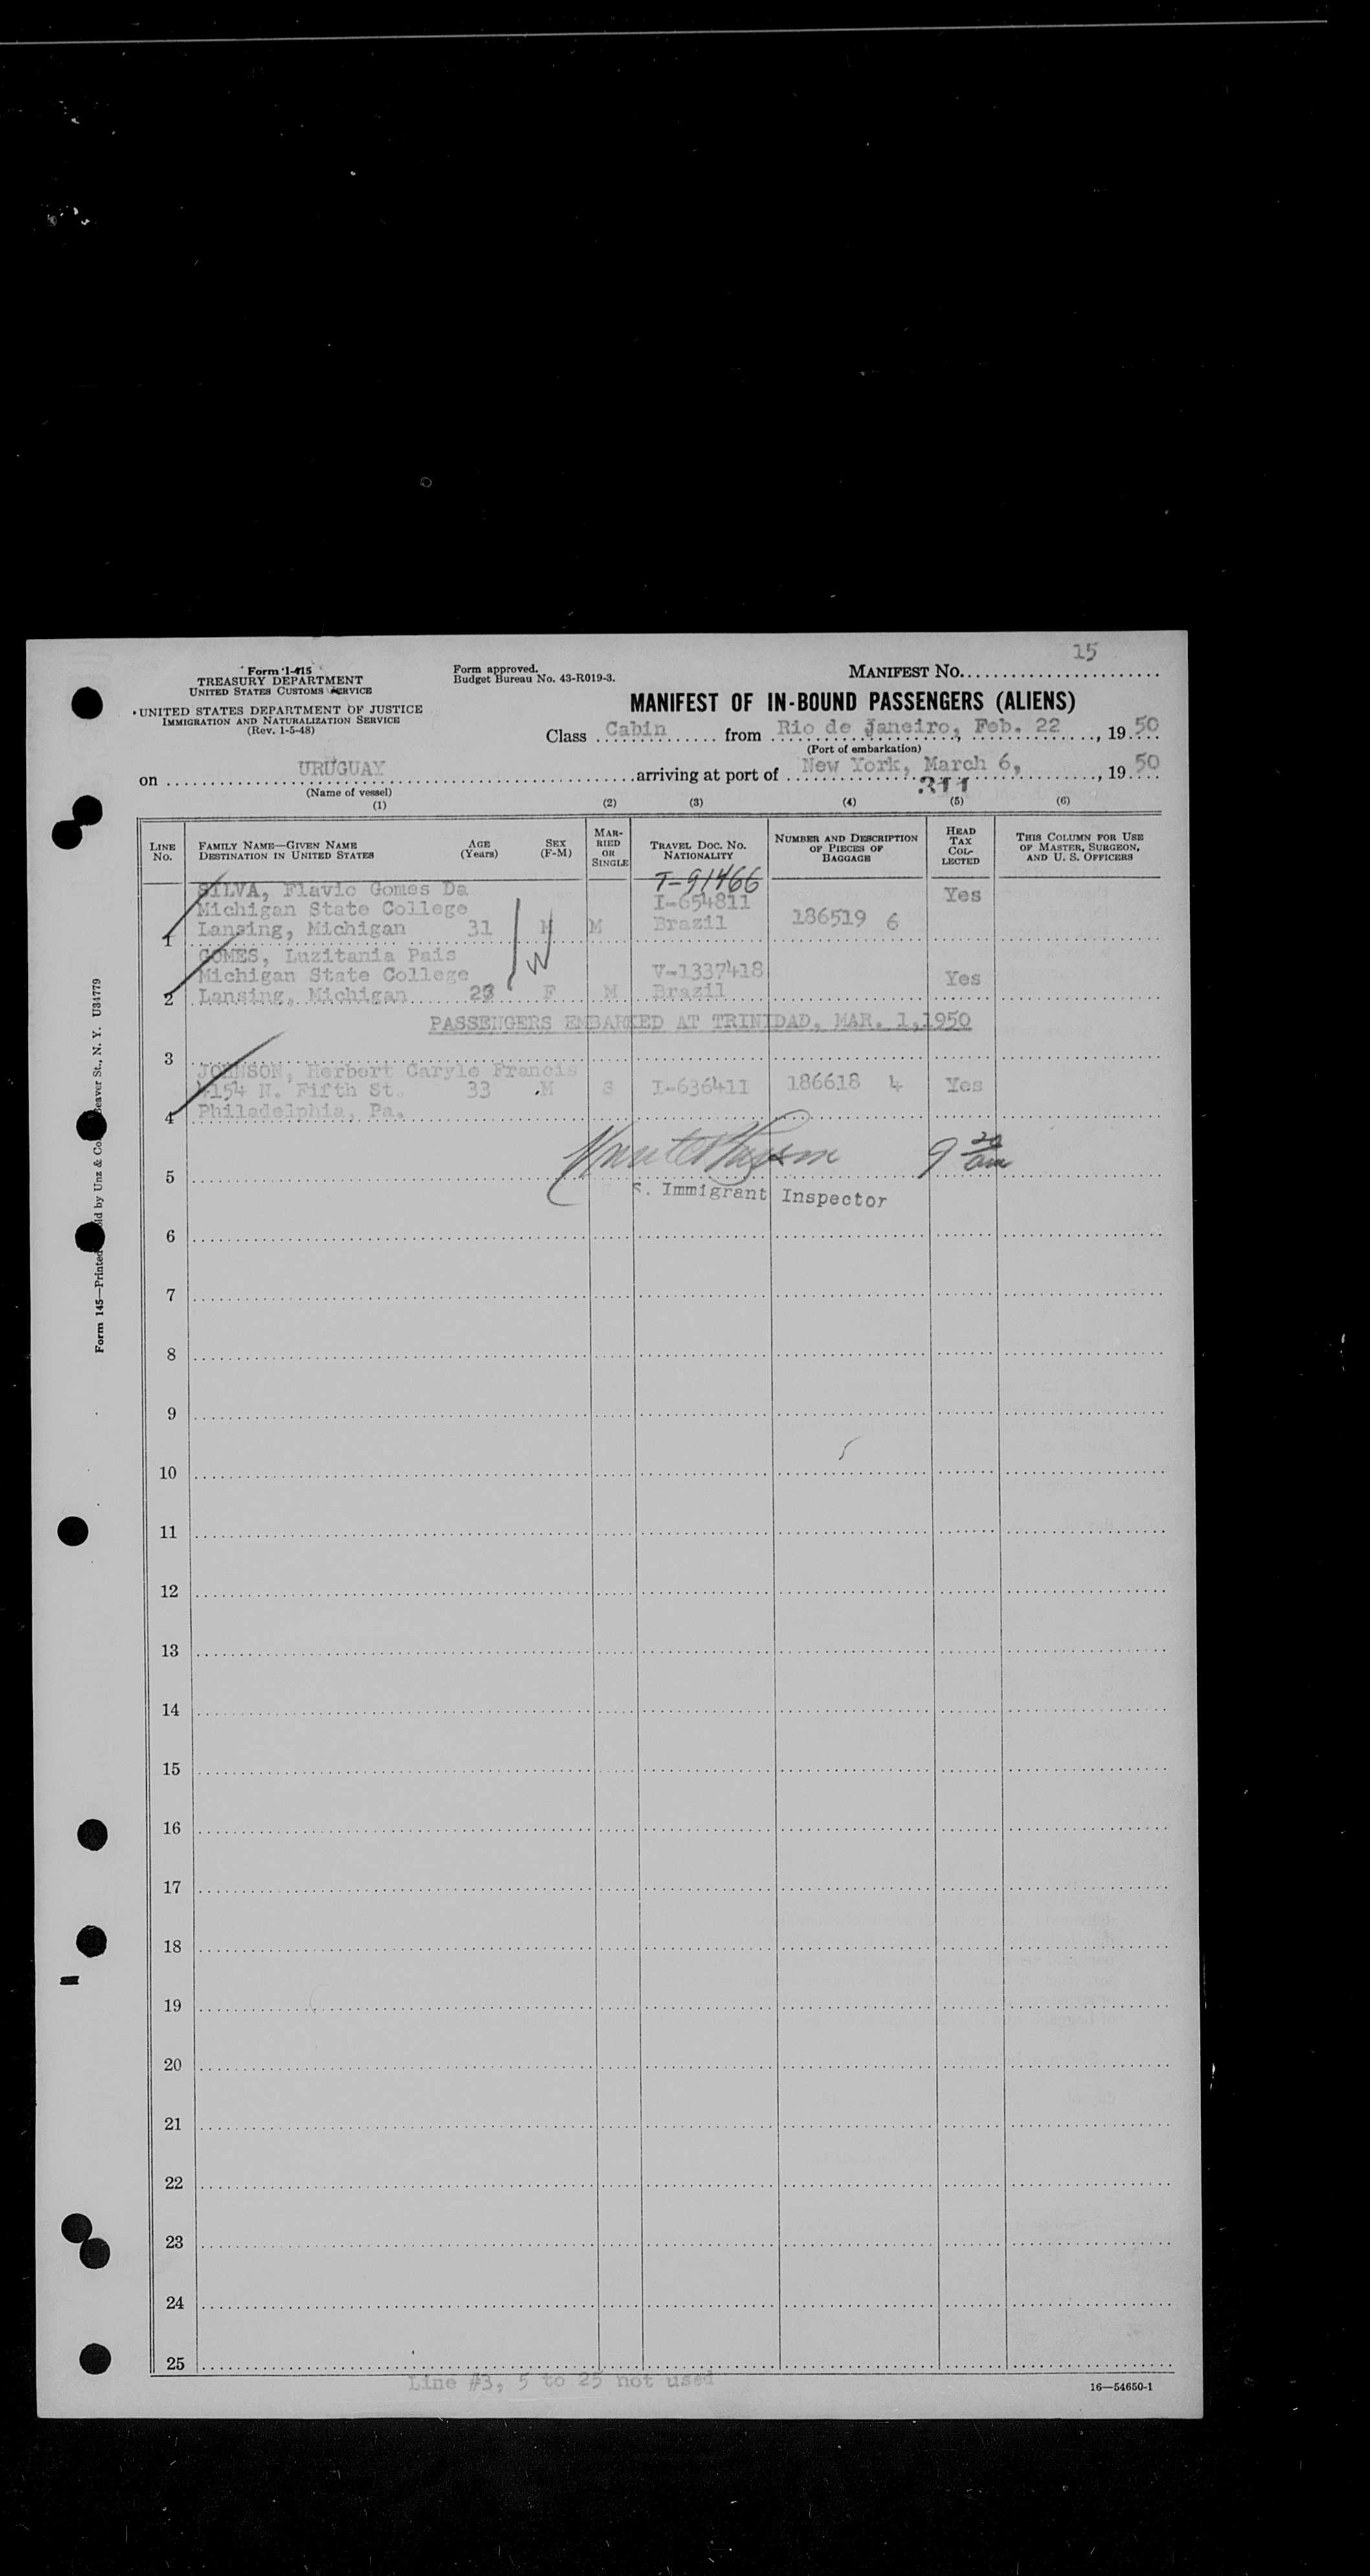 15
Form I-415
TREASURY DEPARTMENT
UNITED STATES CUSTOMS SERVICE
UNITED STATES DEPARTMENT OF JUSTICE
IMMIGRATION AND NATURALIZATION SERVICE
(Rev. 1-5-48)
Form approved.
Budget Bureau No. 43-R019-3.
MANIFEST NO.
MANIFEST OF IN-BOUND PASSENGERS (ALIENS)
Class Cabin from Rio de Janeiro, Feb. 22, 1950
(Port of embarkation)
on URUGUAY arriving at port of New York, March 6, 1950
(Name of vessel)
311
(1) (2) (3) (4) (5) (6)
LINE No. FAMILY NAME—GIVEN NAME DESTINATION IN UNITED STATES AGE (Years) SEX (F-M) MARRIED OR SINGLE TRAVEL DOC. NO. NATIONALITY NUMBER AND DESCRIPTION OF PIECES OF BAGGAGE HEAD TAX COLLECTED THIS COLUMN FOR USE OF MASTER, SURGEON, AND U. S. OFFICERS
T-91466
SILVA, Flavio Gomes Da
Michigan State College I-654811 Yes
1 Lansing, Michigan 31 M M Brazil 186519 6
W
GOMES, Luzitania Pais
Michigan State College V-1337418 Yes
2 Lansing, Michigan F M Brazil
PASSENGERS EMBARKED AT TRINIDAD, MAR. 1, 1950
3
JOHNSON, Herbert Caryle Francis
4154 N. Fifth St. 33 M S I-636411 186618 4 Yes
4 Philadelphia, Pa.
9 20 am
5
S. Immigrant Inspector
6
7
8
9
10
11
12
13
14
15
16
17
18
19
20
21
22
23
24
25
Line #3, 5 to 25 not used
16—54650-1
Form 145—Printed Sold by Unz & Co. Beaver St., N. Y. U34779